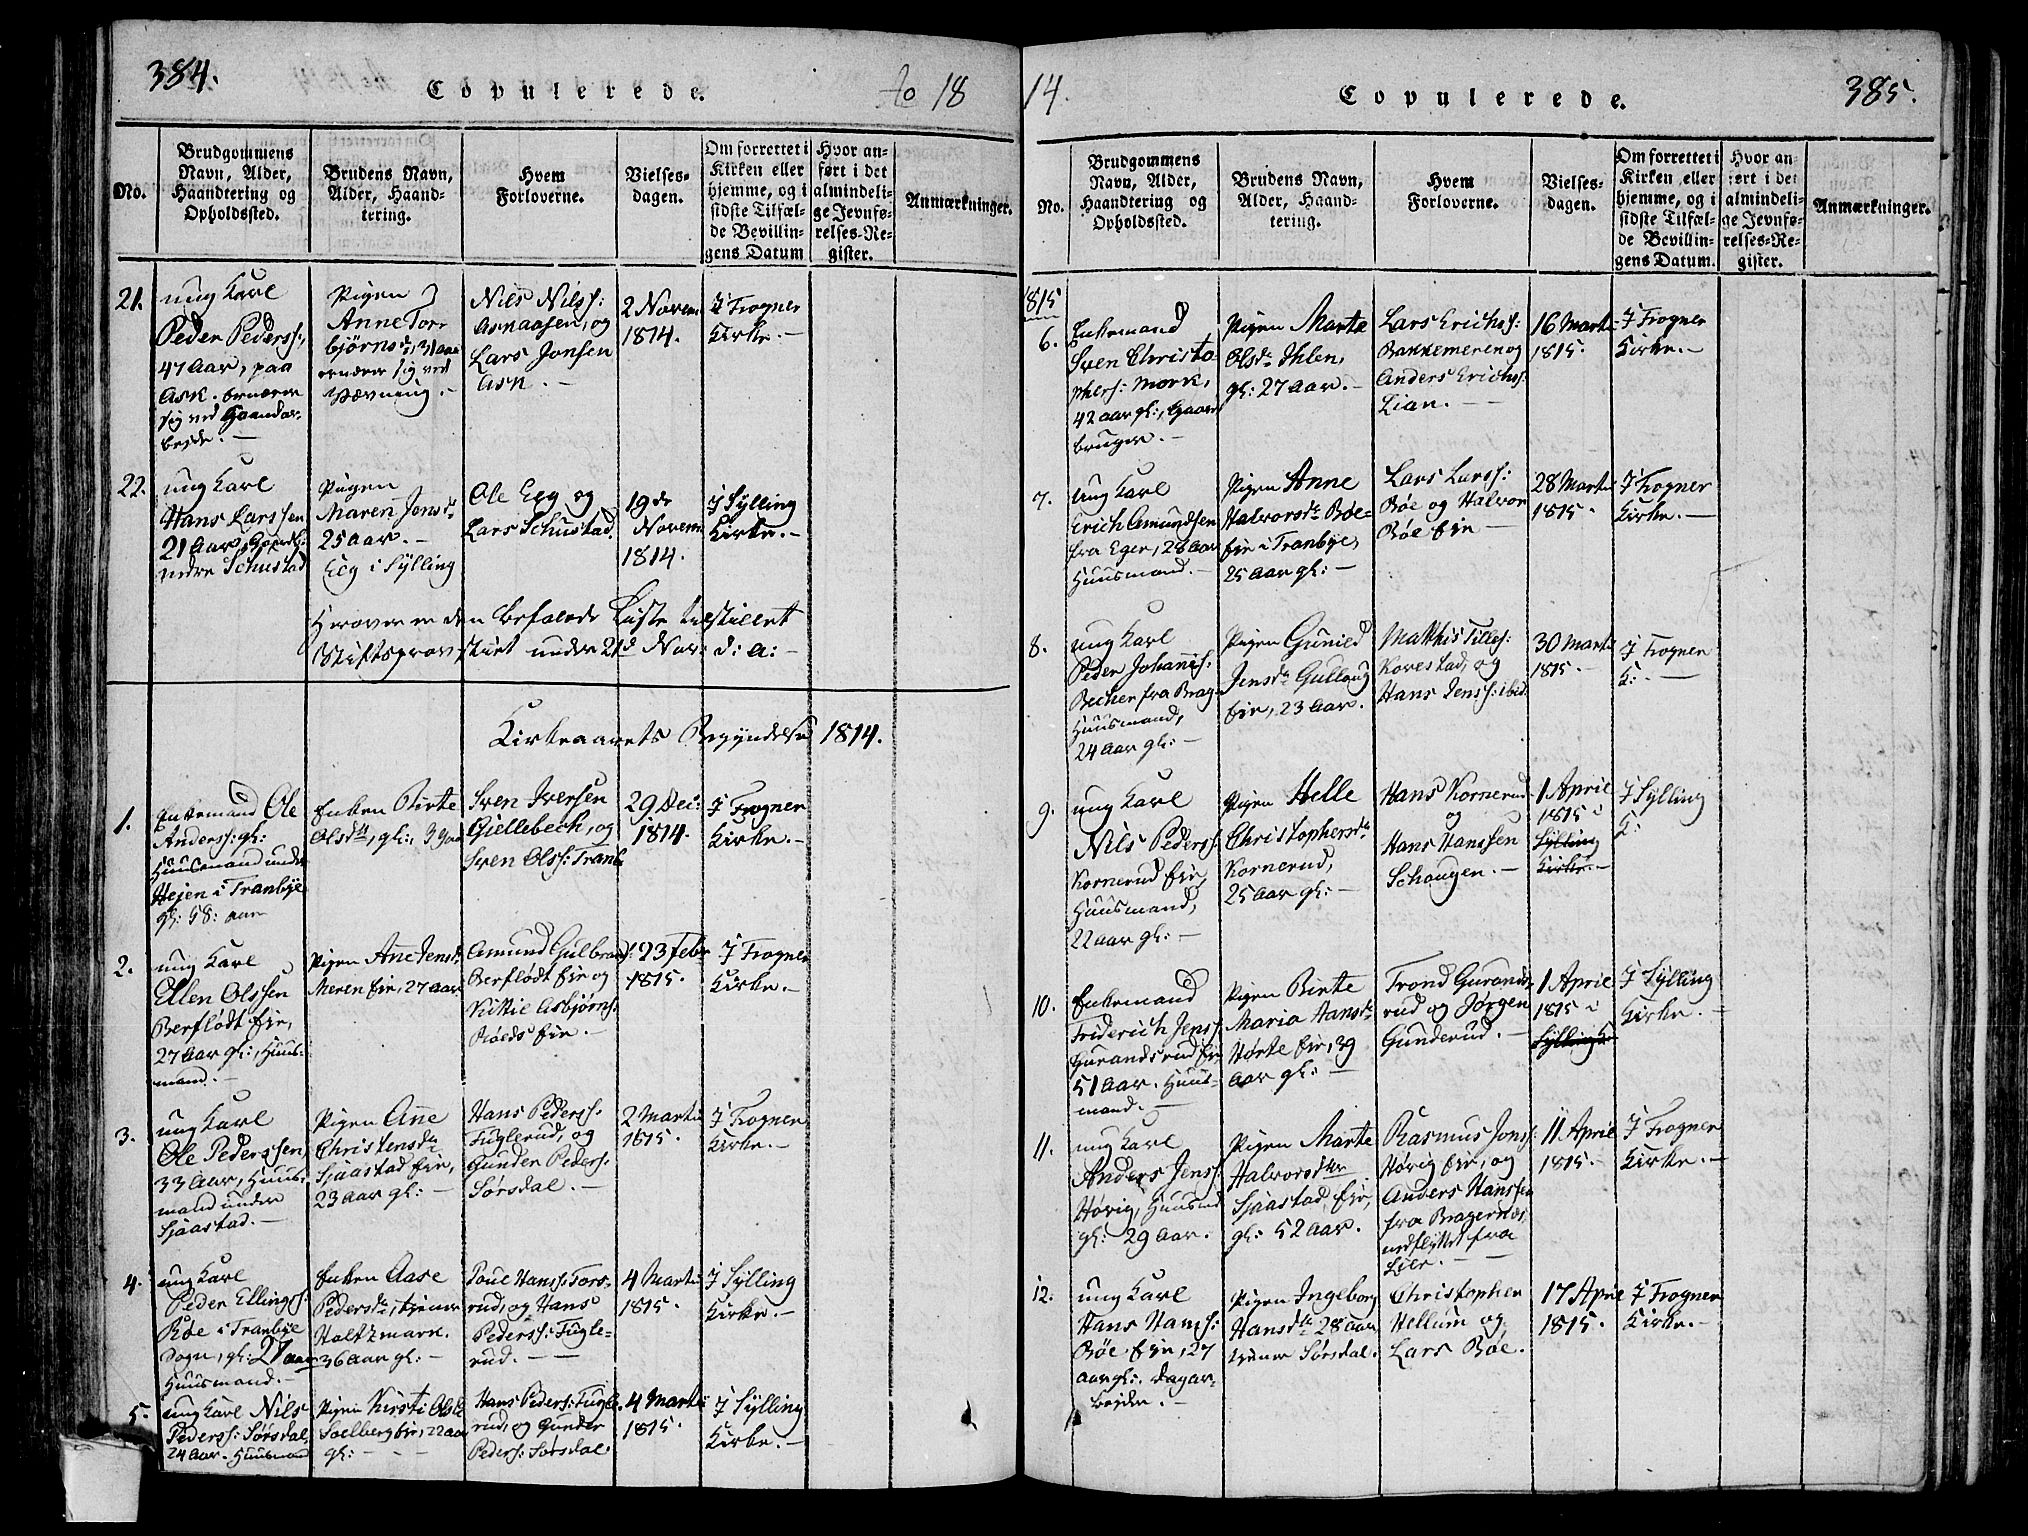 384.
Copulerede.
Ao 18
No.
Brudgommens
Navn, Alder,
Haandtering og
Opholdssted.
Brudens Navn,
Alder, Haand-
tering.
Hvem
Forloverne.
Vielses-
dagen.
Om forrettet i
Kirken eller
hjemme, og i
sidste Tilfæl-
de Bevillin-
gens Datum
Hvor an-
ført i det
almindeli-
ge Jevnfø-
relses-Re-
gister.
Anmærkninger.
21.
ung Karl
Peder Peders:,
47 Aar, paa
Ask. ernærer
sig ved Haandar-
beide. —
Pigen
Anne Tor-
biørnsdr, 31 aar
ernærer sig ved
Vævning. —
Nils Nilss:
Asnaasen, og
Lars Jonsen
Ask. —
2 Novem
1814.
I Frogner
Kirke. —
22.
ung Karl
Hans Larssen
21 Aar, Gaardb:
nedre Schustad
Pigen
Maren Jonsdr
25 aar. —
Egg i Sylling
Ole Egg og
Lars Schustad.
19de
Novem
1814.
I Sylling
Kirke. —
Herover er den befalede Liste tilstillet
Stiftsprovstiet under 21d Nov: d: a: —
Kirkeaarets Begyndelse 1814.
1.
Enkemand Ole
Anderss: gl:
Huusmand under
Hejen i Tranbye
gl: 58: aar
Enken Birte
Olsdtr, gl:
Sven Iversen
Giellebech, og
Sven Olss: Tranb
29 Dec:
1814.
I Frogner
Kirke. —
2.
ung Karl
Ellen Olssen
Berflødt Eie,
27 Aar gl:, Huus-
mand. —
Pigen Ane Jensdr
Meren Eie, 27 aar
Amund Gulbrands:
Berflødt Eie og
Kittil Asbjørns:
Røeds Eie. —
23 Febr
1815.
I Frogner
Kirke. —
3.
ung Karl
Ole Pederssen,
33 Aar, Huus-
mand under
Sjaastad. —
Pigen Ane
Christensdr
Sjaastad Eie,
23 aar gl: —
Hans Pederss:
Fuglerud, og
Gunder Peders:
Sørsdal. —
2 Martii
1815.
I Frogner
Kirke. —
4.
ung Karl
Peder Ellings:
Røe i Tranbye
Sogn, gl: 27 aar
Huusmand. —
Enken Aase
Pedersdr, tjener
Holtzmark.
36 aar gl: —
Poul Hanss: Tors-
rud, og Hans
Pederss: Fugle-
rud. —
4 Martii
1815.
I Sylling
Kirke. —
5.
ung Karl Nils
Pederss: Sørsdal,
24 Aar. Huusmand
Pigen Kirsti Olsdr
Solberg Eie, 22 aar
gl: — —
Hans Peders: Fugle-
rud, og Gunder
Peders: Sørsdal.
4 Martii
1815.
I Sylling
Kirke. —
14.
Copulerede.
385.
No.
Brudgommens
Navn, Alder,
Haandtering og
Opholdssted.
Brudens Navn,
Alder, Haand-
tering.
Hvem
Forloverne.
Vielses-
dagen.
Om forrettet i
Kirken eller
hjemme, og i
sidste Tilfæl-
de Bevillin-
gens Datum.
Hvor an-
ført i det
almindeli-
ge Jevnfø-
relses-Re-
gister.
Anmærkninger.
1815
6.
Enkemand
Sven Christo
phers: Mork,
42 aar gl:, Gaard
bruger. —
Pigen Marte
Olsdr Ihlen,
gl: 27 Aar. —
Lars Erichs:
Bakkemeren og
Anders Erichs:
Lian. —
16 Martii
1815.
I Frogner
Kirke. —
7.
Ung Karl
Erich Amundsen
fra Eger, 28 Aar
Huusmand. —
Pigen Anne
Halvorsdr Bøe-
Eie i Tranbye,
25 Aar gl: —
Lars Larss:
Bøe og Halvor
Bøe Eie —
28 Martii
1815.
I Frogner
Kirke. —
8.
ung Karl
Peder Johanis:
Becher fra Brag:
Huusmand,
24 aar gl: —
Pigen Gunild
Jensdr Gulloug
Eie, 23 Aar.
Matthis Tilles:
Kovestad, og
Hans Jenss: ibid.
30 Martii
1815. —
I Frogner
K: —
9.
ung Karl
Nils Peders:
Kornerud Eie,
Huusmand,
22 aar gl: —
Pigen Helle
Christophersdr
Kornerud,
25 Aar gl: —
Hans Kornerud
og
Hans Hanssen
Schougen. —
1 April
1815 i
Sylling
Kirke. —
I Sylling
K:
10.
Enkemand
Friderich Jens:
Gurandsrud Eie
51 Aar. Huus-
mand. —
Pigen Birte
Maria Hansdr
Hørte Eie, 39
Aar gl: —
Trond Gurands-
rud og Jørgen
Gunderud. —
1 April
1815 i
Sylling K:
I Sylling
Kirke. —
11.
ung Karl
Anders Jens:
Høvig, Huusmd
gl: 29 Aar.
Pigen Marte
Halvorsdtr
Sjaastad, Eie,
gl: 52 Aar.
Rasmus Jonss:
Høvig Eie, og
Anders Hanssen
fra Bragernæs,
nedflyttet fra
Lier. —
11 April
1815. —
I Frogner
Kirke. —
12.
ung Karl
Hans Hans:
Bøe Eie, 27
aar gl: Dagar-
beider. —
Pigen Ingeborg
Hansdtr 28 aar
tjener Sørsdal.
Christopher
Hellum og
Lars Bøe.
17 April
1815.
I Frogner
Kirke. —